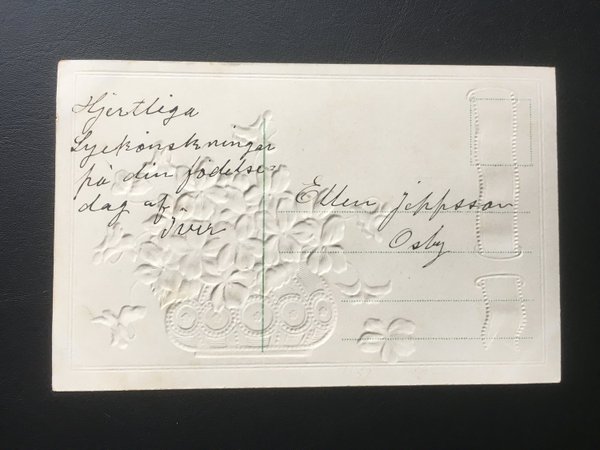 Hjertliga
Lyckönskningar
på din födelse-
dag af
Iver
Ellen Jeppsson
Osby